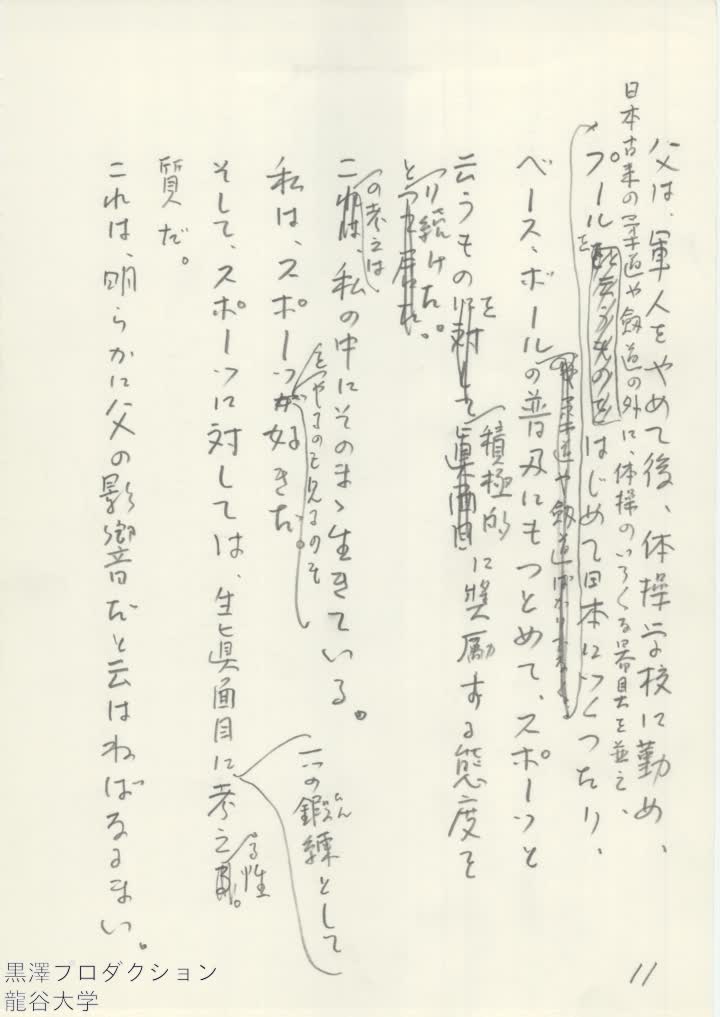 父は、軍人をやめて後、体操学校に勤め、
日本古来の柔道や劔道の外に、体操のいろくな器具を並べ、
プールをはじめて日本につくつたり、
ベース・ボールの普及にもつとめて、スポーツと
云うものを積極的に奨励する態度を
とり続けた。
この考えは、私の中にそのまゝ生きている。
私は、スポーツが好きだ。
をやるのも見るのも
そして、スポーツに対しては、生真面目に考える性
一つの鍛錬として
たん
質だ。
これは、明らかに父の影響だと云はねばなるまい。
11
黒澤プロダクション
龍谷大学